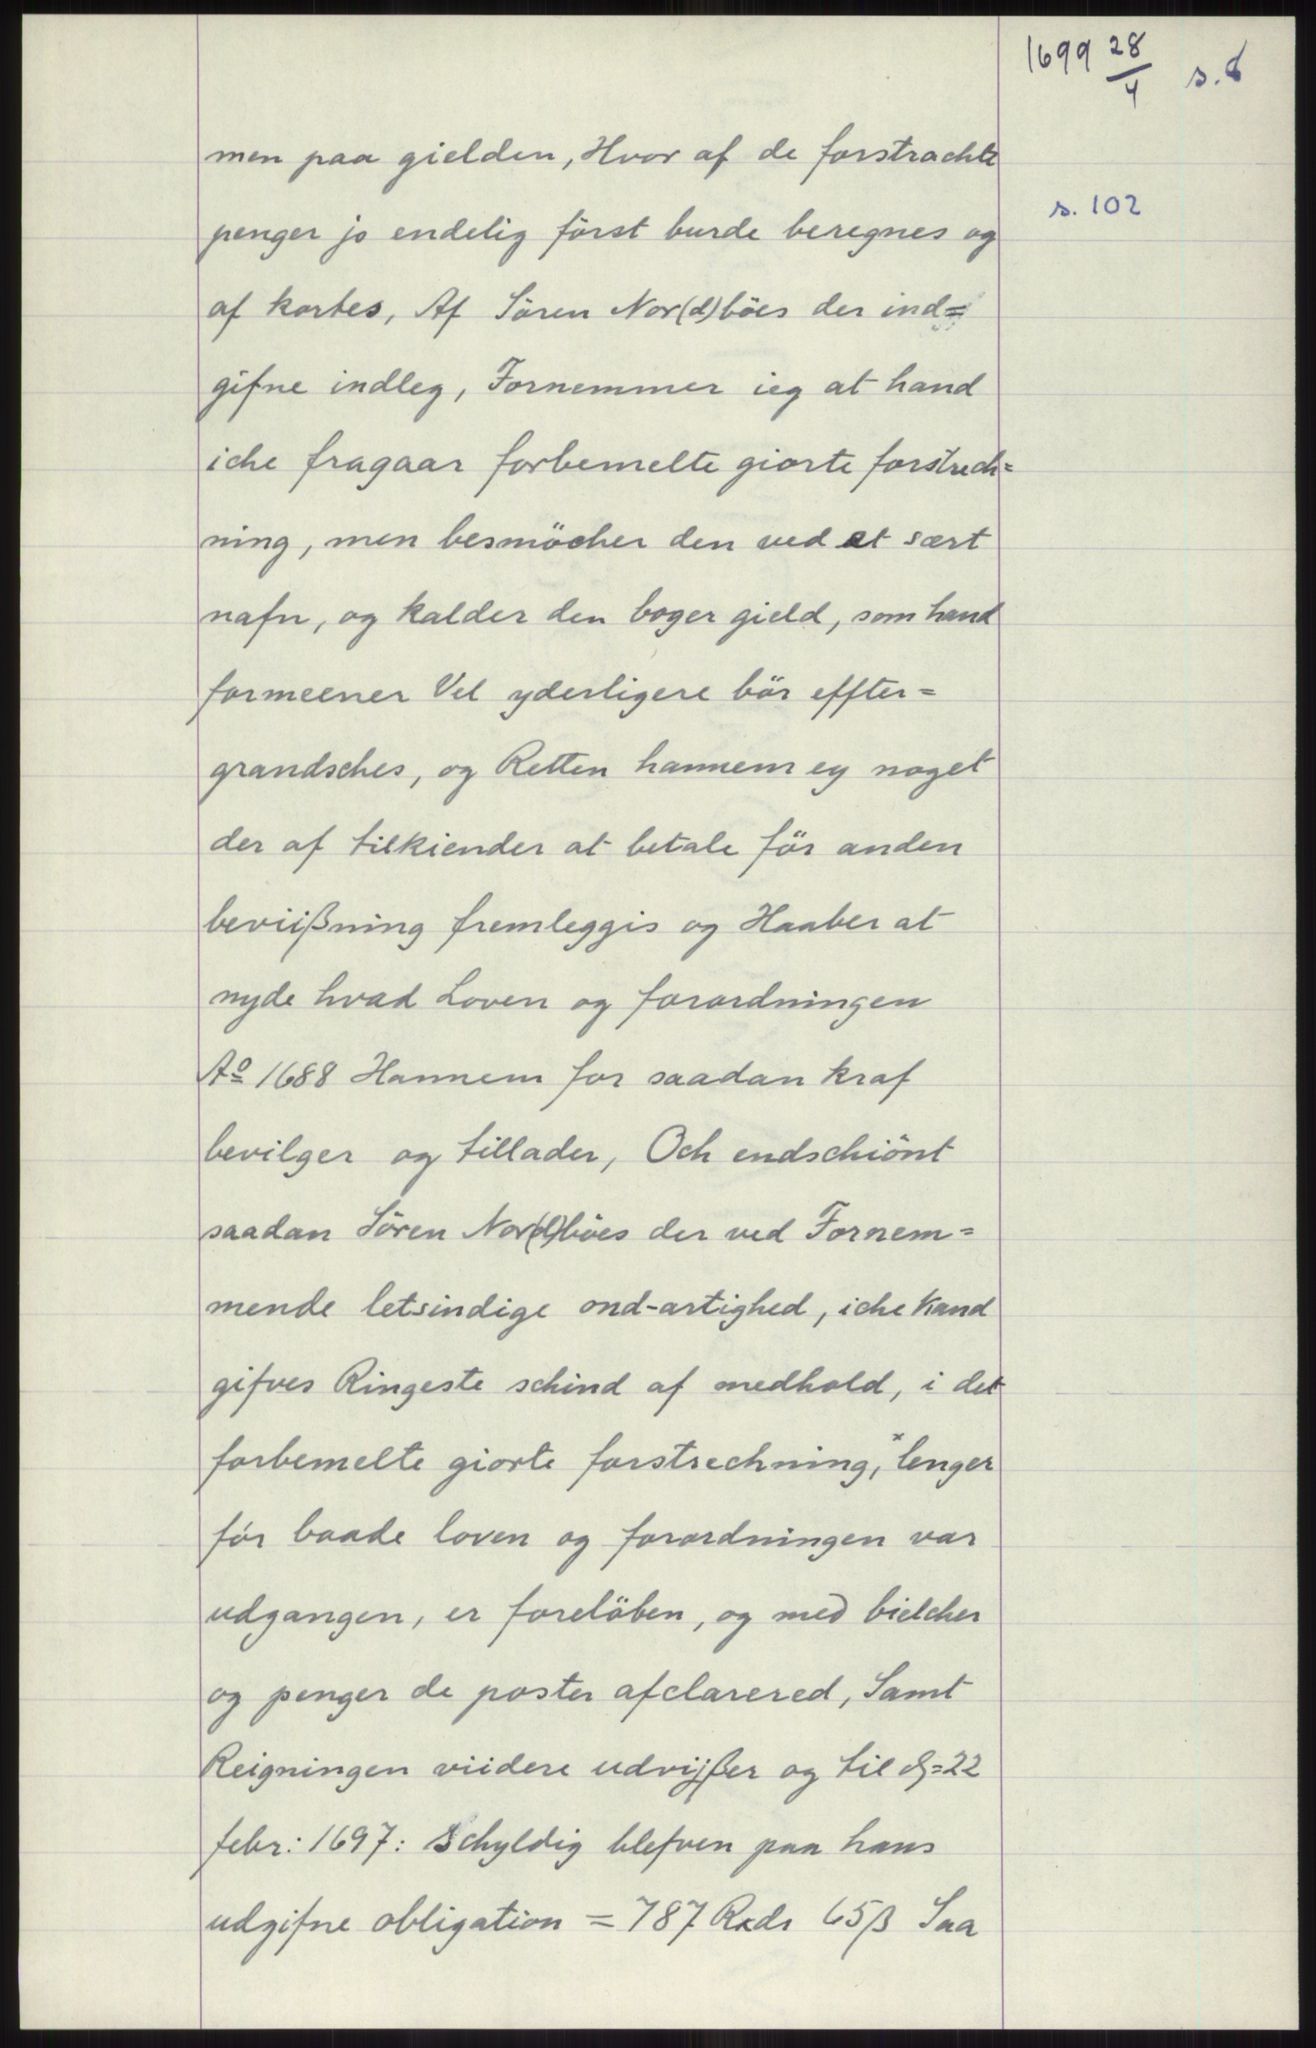 1699 28/4 s. 6
men paa gielden, Hvor af de forstrachte
s. 102
penger jo endelig först burde beregnes og
af kortes, Af Sören Nor(d)böes der ind=
gifne indleg, Fornemmer ieg at hand
iche fragaar forbemelte giorte forstrech=
ning, men besmöcher den ved et sært
nafn, og kalder den boger gield, som hand
formeener Vel yderligere bör effter=
grandsches, og Retten hannem ey noget
der af tilkiender at betale för anden
beviißning fremleggis og Haaber at
nyde hvad Loven og forordningen
Aº 1688 Hannem for saadan kraf
bevilger og tillader, Och endschiönt
saadan Sören Nor(d)böes der ved Fornem=
mende letsindige ond-artighed, iche kand
gifves Ringeste schind af medhold, i det
forbemelte giorte forstrechning,* lenger
för baade loven og forordningen var
udgangen, er foreløben, og med bielcher
og penger de poster afclarered, Samt
Reigningen viidere udvijßer og til d=22
febr: 1697: Schyldig blefven paa hans
udgifne obligation = 787 Rxdr 65ß Saa